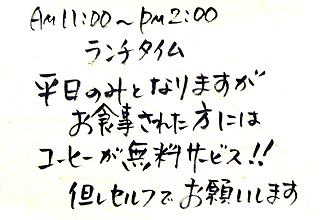 AM11:00~PM2:00
ランチタイム
平日のみとなりますが
お食事された方には
コーヒーが無料サービス!!
但しセルフでお願いします